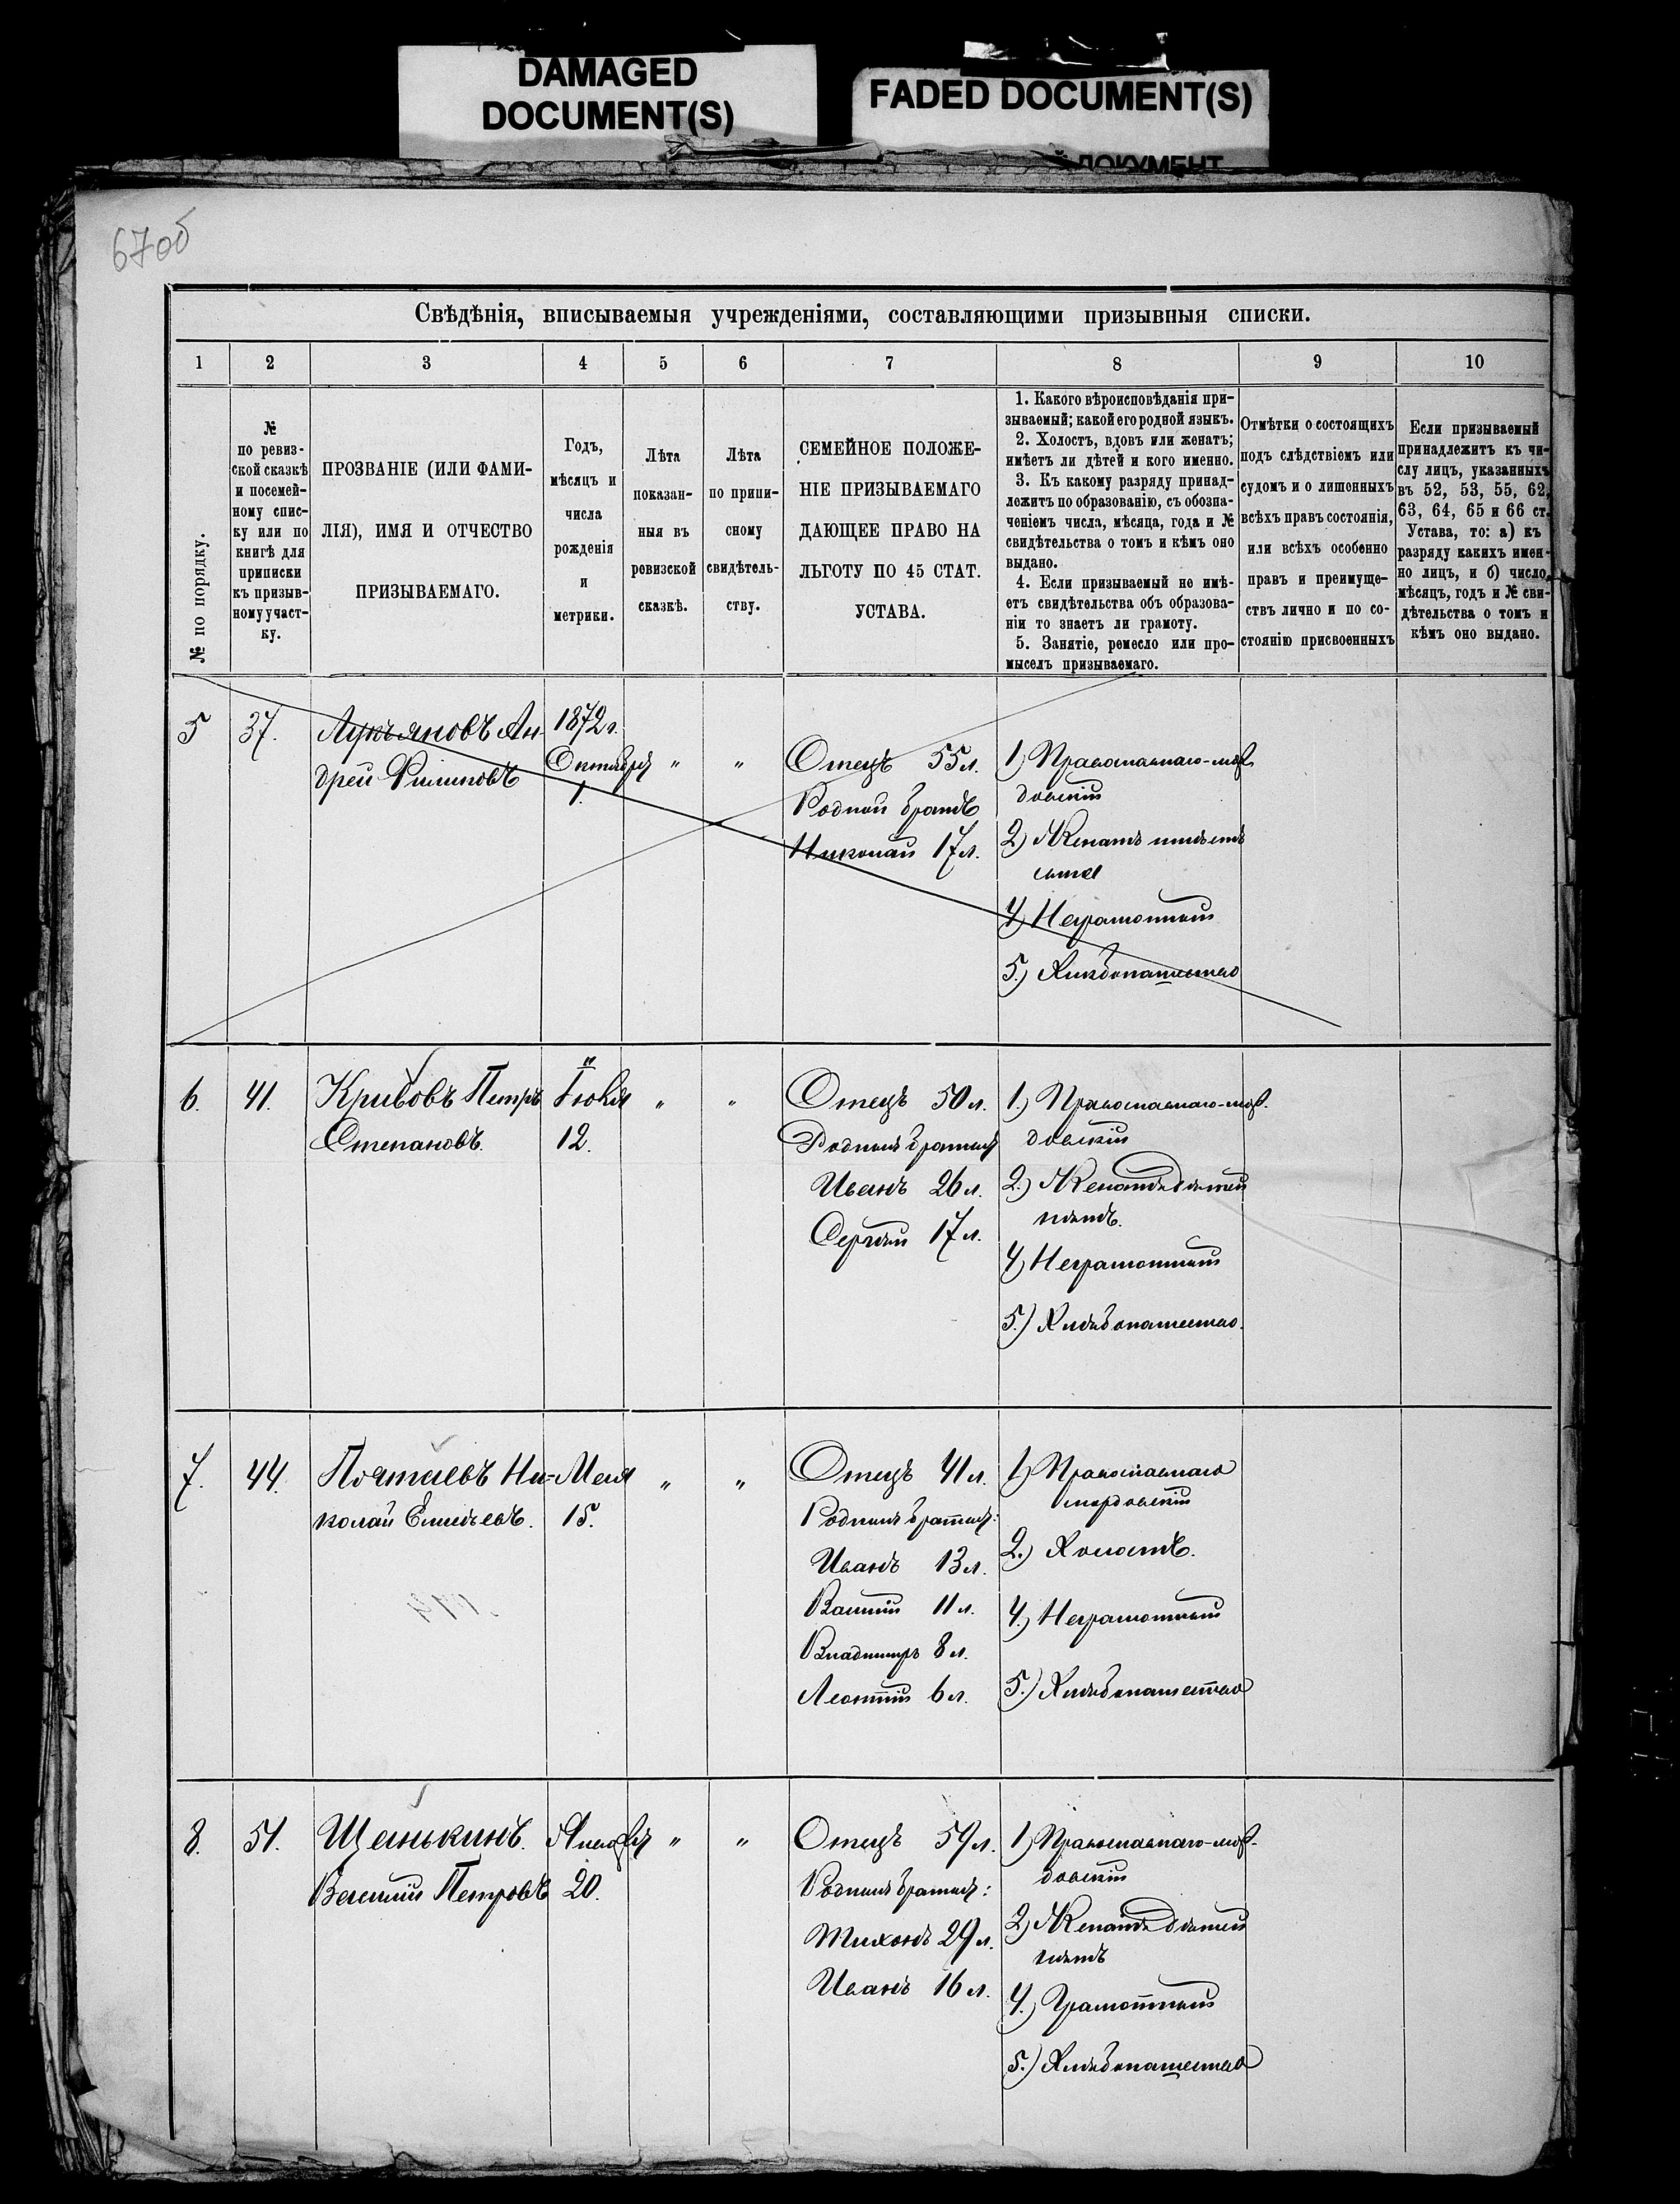 DAMAGED
DOCUMENT(S)
FADED DOCUMENT(S)
ДОКУМЕНТ
67об
Свѣдѣнія, вписываемыя учрежденіями, составляющими призывныя списки.
1 2 3 4 5 6 7 8 9 10
№ по порядку.
№
по ревиз-
ской сказкѣ
и посемей-
ному спис-
ку или по
книгѣ для
приписки
къ призыв-
ному участ-
ку.
ПРОЗВАНІЕ (ИЛИ ФАМИ-
ЛІЯ), ИМЯ И ОТЧЕСТВО
ПРИЗЫВАЕМАГО.
Годъ,
мѣсяцъ и
числа
рожденія
и
метрики.
Лѣта
показан-
ныя въ
ревизской
сказкѣ.
Лѣта
по припи-
сному
свидѣтель-
ству.
СЕМЕЙНОЕ ПОЛОЖЕ-
НІЕ ПРИЗЫВАЕМАГО
ДАЮЩЕЕ ПРАВО НА
ЛЬГОТУ ПО 45 СТАТ.
УСТАВА.
1. Какого вѣроисповѣданія при-
зываемый; какой его родной языкъ.
2. Холостъ, вдовъ или женатъ;
имѣетъ ли дѣтей и кого именно.
3. Къ какому разряду принад-
лежитъ по образованію, съ обозна-
ченіемъ числа, мѣсяца, года и №
свидѣтельства о томъ и кѣмъ оно
выдано.
4. Если призываемый не имѣ-
етъ свидѣтельства объ образова-
ніи то знаетъ ли грамоту.
5. Занятіе, ремесло или про-
мыселъ призываемаго.
Отмѣтки о состоящихъ
подъ слѣдствіемъ или
судомъ и о лишенныхъ
всѣхъ правъ состоянія,
или всѣхъ особенно
правъ и преимуще-
ствъ лично и по со-
стоянію присвоенныхъ
Если призываемый
принадлежитъ къ чи-
слу лицъ, указанныхъ
въ 52, 53, 55, 62,
63, 64, 65 и 66 ст.
Устава, то: а) къ
разряду какихъ имен-
но лицъ, и б) число,
мѣсяцъ, годъ и № сви-
дѣтельства о томъ и
кѣмъ оно выдано.
5
37.
Лукъяновъ Ан-
дрей Филиповъ
1872 г.
Октября
1.
"
"
Отецъ 55 л.
Родной братъ
Николай 17 л.
1) Православнаго-мор
довскій
2) Женатъ имѣетъ
сына
4) Неграмотный
5.) Хлѣбопашество
6.
41.
Кривовъ Петръ
Степановъ.
"
Іюля
12.
"
"
Отецъ 50 л.
Родныя братья
Иванъ 26 л.
Сергѣй 17 л.
1.) Православнаго-мор.
довскій
2.) Женатъ дѣтей
нѣтъ.
4) Неграмотный
5.) Хлѣбопашество.
7.
44.
Почтаевъ Ни-
колай Емельевъ.
Мая
15.
"
"
Отецъ 41 л.
Родныя братья:
Иванъ 13 л.
Василій 11 л.
Владиміръ 8 л.
Леонтій 6 л.
1) Православнаго
мордовскій
2.) Холостъ.
4.) Неграмотный
5.) Хлѣбопашество
8.
51.
Щанькинъ.
Василій Петровъ
Января
20.
"
"
Отецъ 59 л.
Родныя братья:
Тихонъ 29 л.
Иванъ 16 л.
1) Православнаго-мор-
довскій
2) Женатъ дѣтей
нѣтъ
4.) Грамотный
5.) Хлѣбопашество